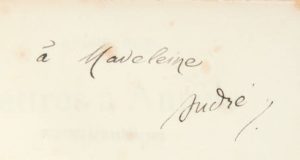 à Madeleine
André